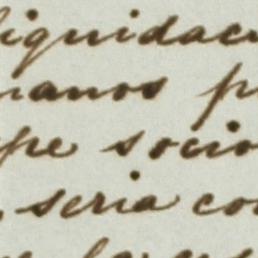 liquidac
manos p
pe socio
, seria co